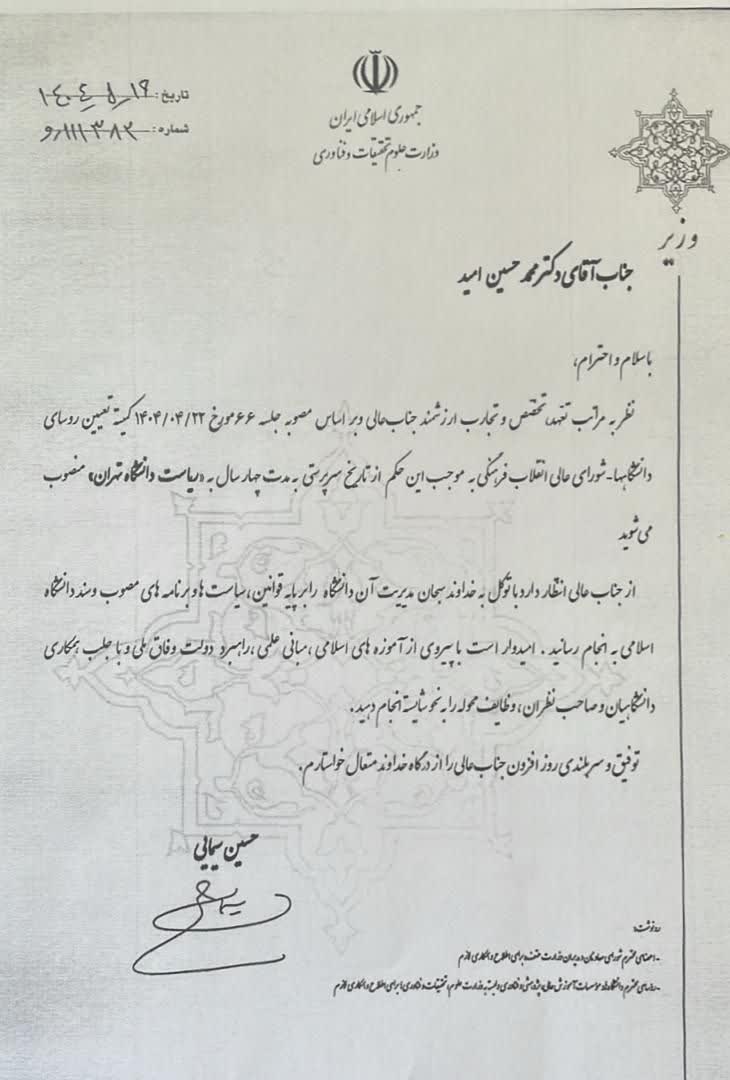 جمهوری اسلامی ایران
وزارت علوم تحقیقات و فناوری
تاریخ: ۱۴۰۴٫۵٫۱۶
شماره: ۱۱۱۳۸۲٫و
وزیر
جناب آقای دکتر محمد حسین امید
با سلام و احترام،
نظر به مراتب تعهد، تخصص و تجارب ارزشمند جناب‌عالی و بر اساس مصوبه جلسه ۶۶ مورخ ۱۴۰۴/۰۴/۲۲ کمیته تعیین روسای
دانشگاهها-شورای عالی انقلاب فرهنگی به موجب این حکم از تاریخ سرپرستی به مدت چهار سال به «ریاست دانشگاه تهران» منصوب
می شوید
از جناب عالی انتظار دارد با توکل به خداوند سبحان مدیریت آن دانشگاه را بر پایه قوانین، سیاست ها و برنامه های مصوب و سند دانشگاه
اسلامی به انجام رسانید. امیدوار است با پیروی از آموزه های اسلامی، مبانی علمی، راهبرد دولت وفاق ملی و با جلب همکاری
دانشگاهیان و صاحب نظران، وظایف محوله را به نحو شایسته انجام دهید.
توفیق و سربلندی روز افزون جناب‌عالی را از درگاه خداوند متعال خواستارم.
حسین سیمایی
رونوشت:
-اعضای محترم شورای معاونان و مدیران وزارت متبوع برای اطلاع و همکاری لازم
-روسای محترم دانشگاه‌ها و موسسات آموزش عالی، پژوهشی و فناوری وابسته به وزارت علوم، تحقیقات و فناوری/برای اطلاع و همکاری لازم